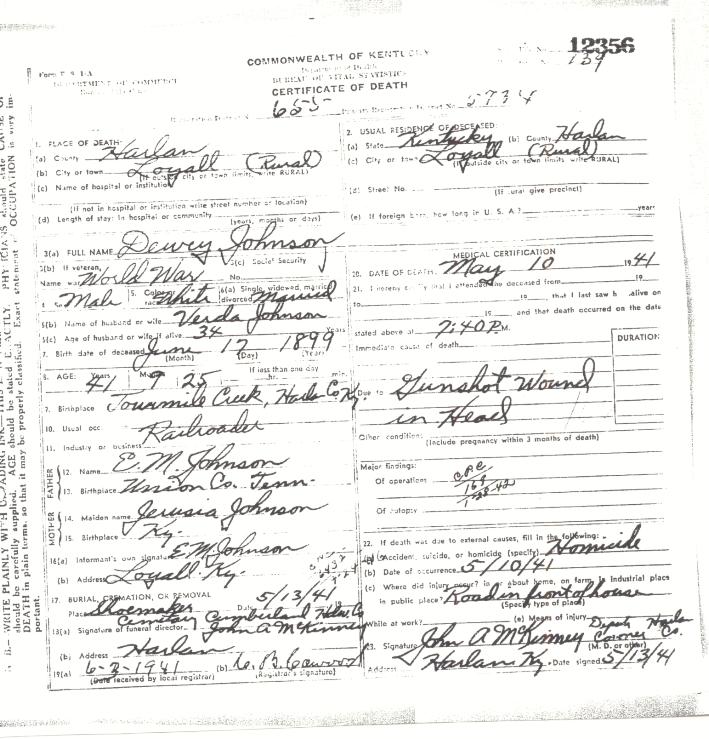 12356
COMMONWEALTH OF KENTUCKY
139
DEPARTMENT OF COMMERCE
BUREAU OF VITAL STATISTICS
CERTIFICATE OF DEATH
655 5734
1. PLACE OF DEATH:
(a) County Harlan
(b) City or town Loyall (Rural)
(If outside city or town limits, write RURAL)
(c) Name of hospital or institution
(If not in hospital or institution write street number or location)
(d) Length of stay: In hospital or community
(years, months or days)
2. USUAL RESIDENCE OF DECEASED:
(a) State Kentucky (b) County Harlan
(c) City or town Loyall (Rural)
(If outside city or town limits write RURAL)
(d) Street No.
(If rural give precinct)
(e) If foreign born, how long in U. S. A.? years
3(a) FULL NAME Dewey Johnson
3(b) If veteran, Name war World War
3(c) Social Security No.
4. Sex Male 5. Color or race White 6(a) Single, widowed, married, divorced Married
6(b) Name of husband or wife Verda Johnson
6(c) Age of husband or wife if alive 34 Years
7. Birth date of deceased June 17 1899
(Month) (Day) (Year)
8. AGE: Years Months If less than one day
41 9 25 hr. min.
9. Birthplace Harlan Co Ky.
10. Usual occ Railroader
11. Industry or business
FATHER
12. Name E. M. Johnson
13. Birthplace Union Co. Tenn.
MOTHER
14. Maiden name Jerusia Johnson
15. Birthplace Ky.
16(a) Informant's own signature E M Johnson
(b) Address Loyall Ky.
17. BURIAL, CREMATION, OR REMOVAL
Place Shoemaker Cemetary Cumberland Date 5/13/41
18(a) Signature of funeral director John A McKinney
(b) Address Harlan
19(a) 6-3-1941 (b)
(Date received by local registrar) (Registrar's signature)
MEDICAL CERTIFICATION
20. DATE OF DEATH May 10 1941
21. I hereby certify that I attended the deceased from 19
to 19 that I last saw h alive on
19 and that death occurred on the date
stated above at 2:40 P.M.
Immediate cause of death
DURATION:
Due to Gunshot Wound
in Head
Other conditions
(Include pregnancy within 3 months of death)
Major findings:
Of operations
Of autopsy
22. If death was due to external causes, fill in the following:
(a) Accident, suicide, or homicide (specify) Homicide
(b) Date of occurrence 5/10/41
(c) Where did injury occur? in or about home, on farm, in industrial place
in public place? Road in front of house
(Specify type of place)
While at work? (e) Means of injury
23. Signature John A McKinney Deputy Coroner Harlan Co.
(M. D. or other)
Address Harlan Ky. Date signed 5/13/41